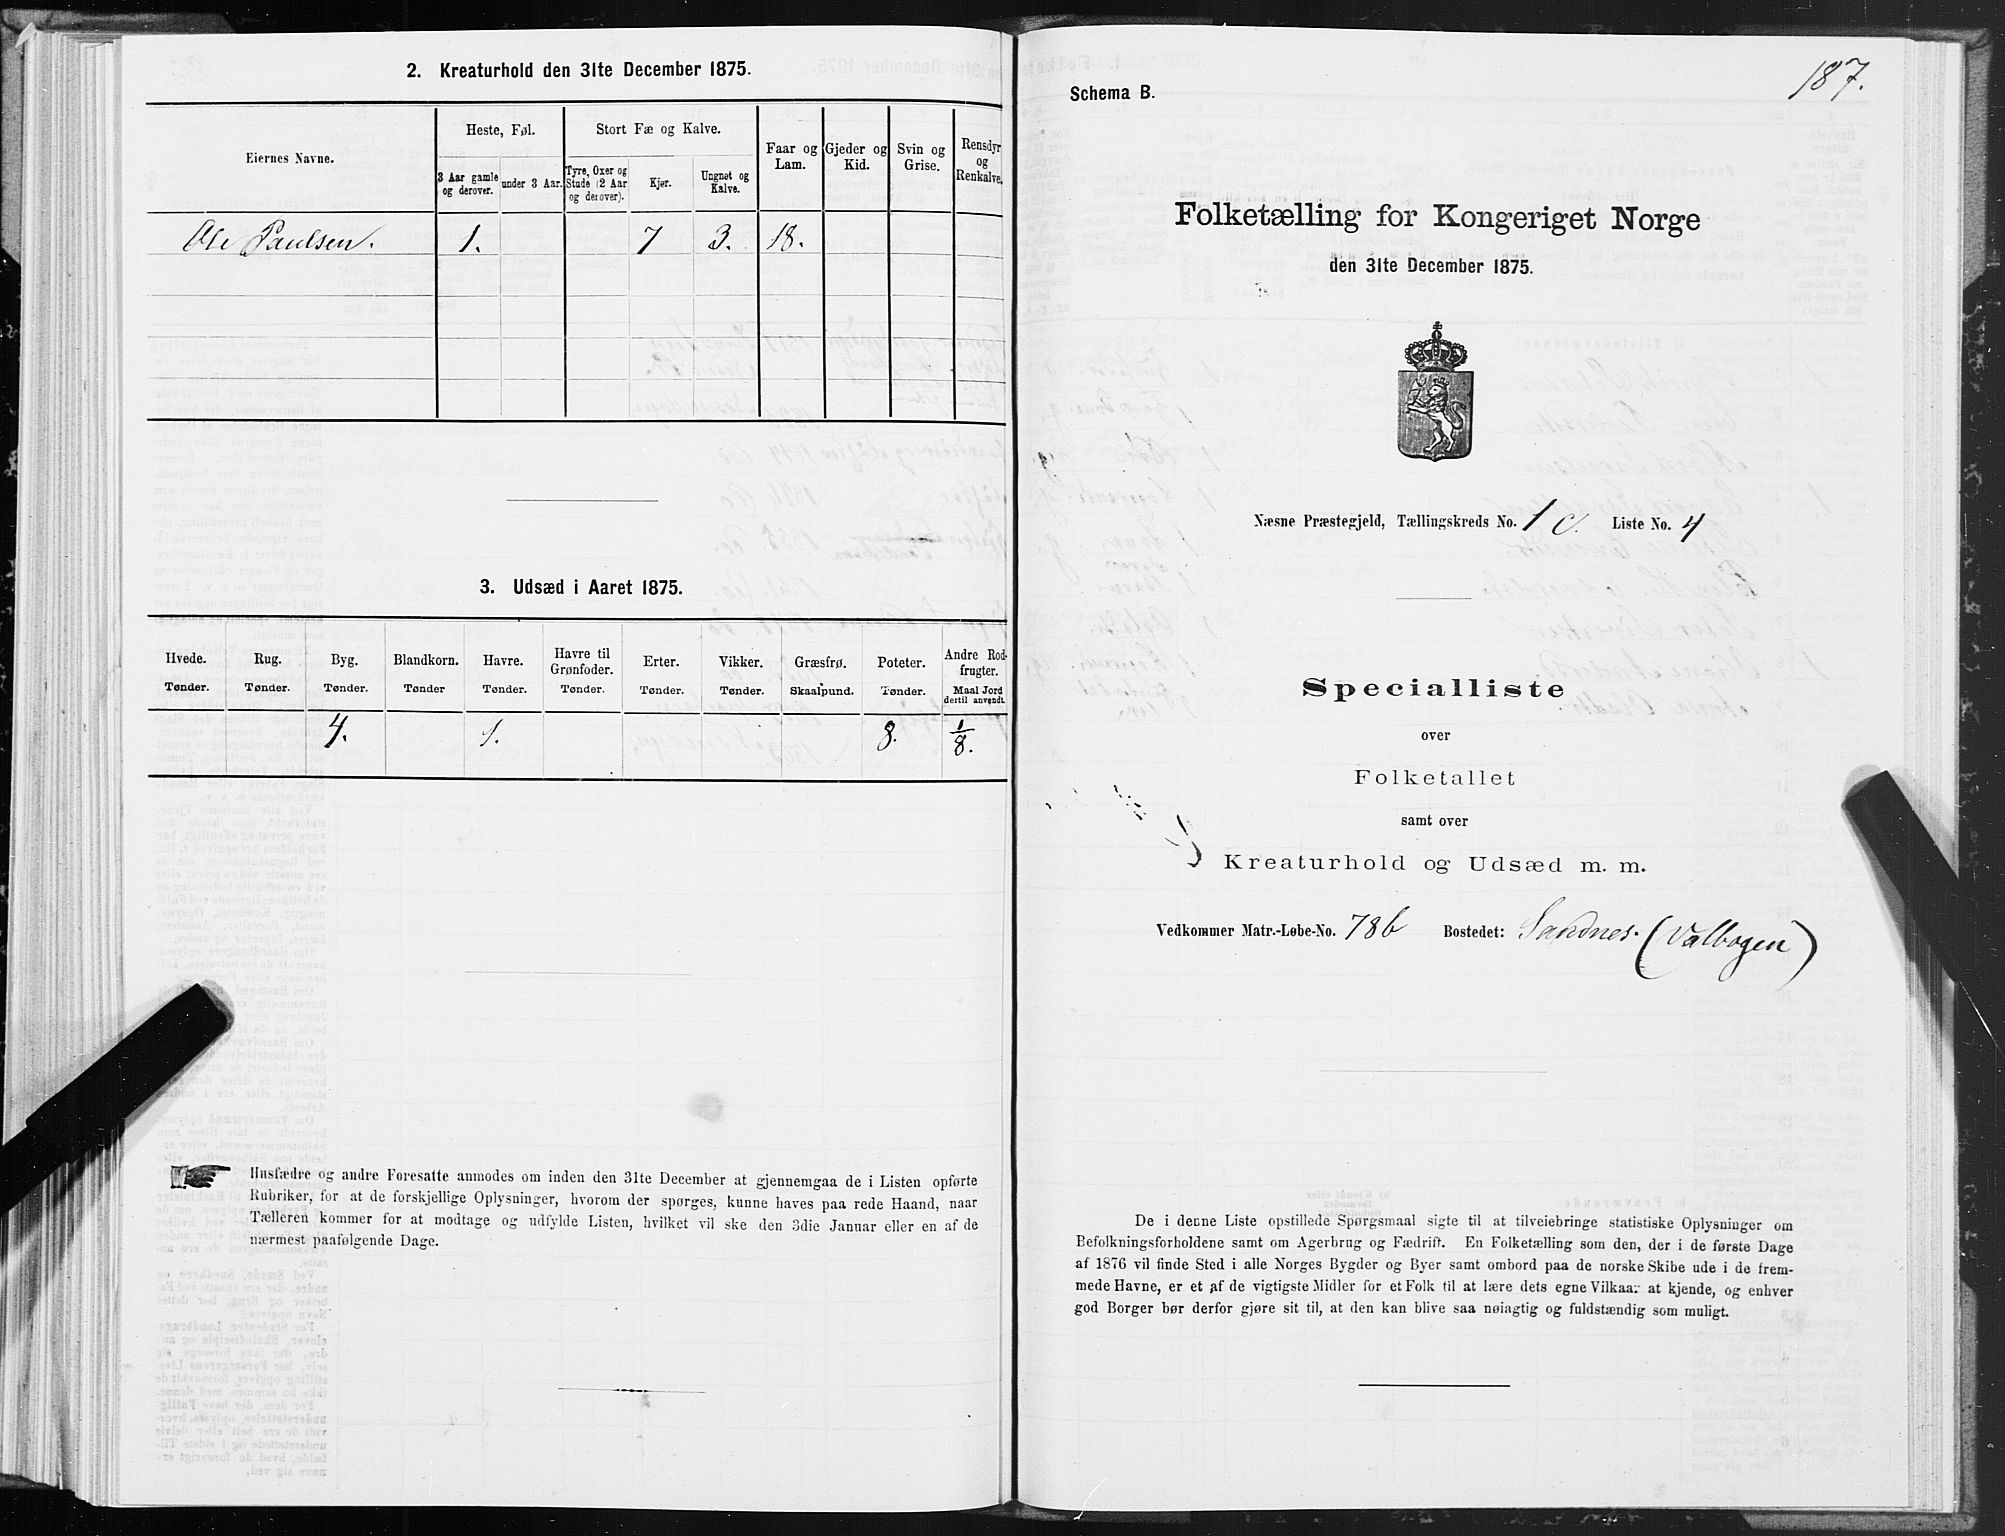 2. Kreaturhold den 31te December 1875.
Eiernes Navne.
Heste, Føl.
Stort Fæ og Kalve.
Faar og Lam.
Gjeder og Kid.
Svin og Grise.
Rensdyr og Renkalve.
3 Aar gamle og derover.
under 3 Aar.
Tyre, Oxer og Stude (2 Aar og derover).
Kjør.
Ungnet og Kalve.
Ole Paulsen. 1. 7 3. 18.
3. Udsæd i Aaret 1875.
Hvede. Rug. Byg. Blandkorn. Havre. Havre til Grønfoder. Erter. Vikker. Græsfrø. Poteter. Andre Rodfrugter.
Tønder. Tønder. Tønder. Tønder Tønder. Tønder. Tønder. Tønder. Skaalpund. Tønder. Maal Jord dertil anvendt.
4. 1. 8. 1/8.
Husfædre og andre Foresatte anmodes om inden den 31te December at gjennemgaa de i Listen opførte
Rubriker, for at de forskjellige Oplysninger, hvorom der spørges, kunne haves paa rede Haand, naar
Tælleren kommer for at modtage og udfylde Listen, hvilket vil ske den 3die Januar eller en af de
nærmest paafølgende Dage.
187.
Schema B.
Folketælling for Kongeriget Norge
den 31te December 1875.
Næsne Præstegjeld, Tællingskreds No. 1 c. Liste No. 4
Specialliste
over
Folketallet
samt over
Kreaturhold og Udsæd m. m.
Vedkommer Matr.-Løbe-No. 78b Bostedet: Sandnes. (Valbogen)
De i denne Liste opstillede Spørgsmaal sigte til at tilveiebringe statistiske Oplysninger om
Befolkningsforholdene samt om Agerbrug og Fædrift. En Folketælling som den, der i de første Dage
af 1876 vil finde Sted i alle Norges Bygder og Byer samt ombord paa de norske Skibe ude i de frem-
mede Havne, er et af de vigtigste Midler for et Folk til at lære dets egne Vilkaar at kjende, og enhver
god Borger bør derfor gjøre sit til, at den kan blive saa nøiagtig og fuldstændig som muligt.